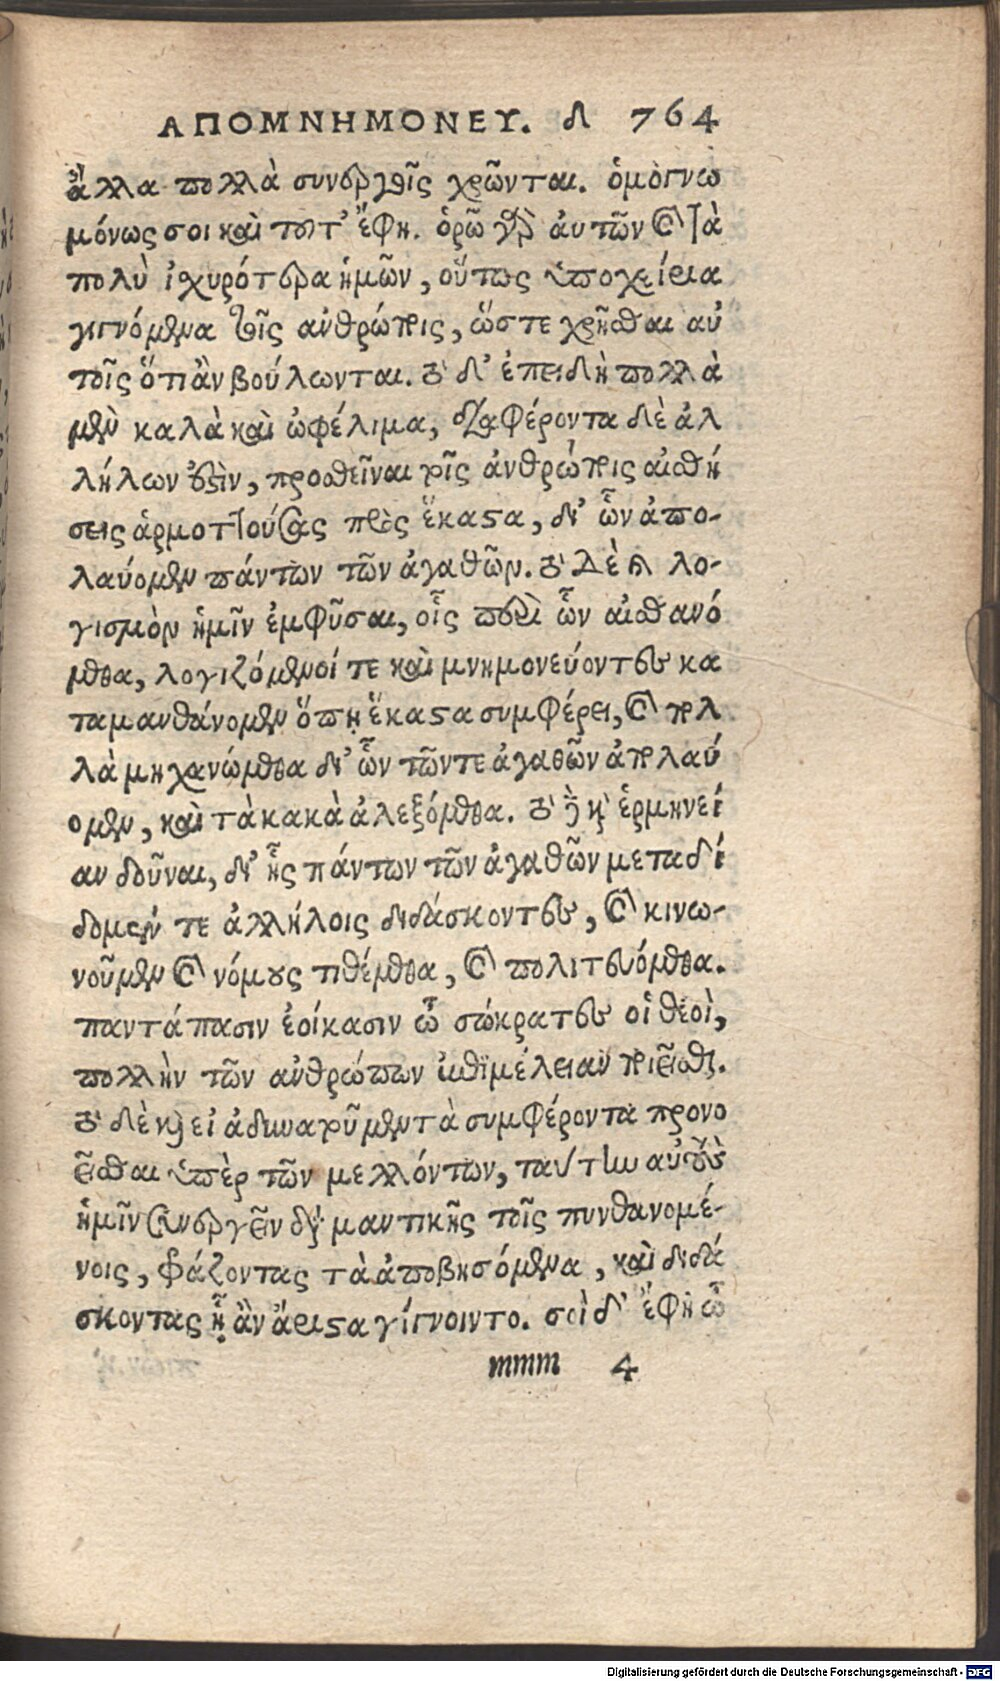 ΑΠΟΜΝΗΜΟΝΕΥ. Δ 764
ἄλλα πολλὰ συνεργοῖς χρῶνται. ὁμογνω
μόνως σοι καὶ τοῦτ’ ἔφη. ὁρῶ γὰρ ἀυτῶν καὶ τὰ
πολὺ ἰχυρότερα ἡμῶν, οὕτως ὑποχείρια
γιγνόμενα τοῖς ἀνθρώποις, ὥστε χρῆσθαι αὐ
τοῖς ὅτι ἂν βούλωνται. τὸ δ’ ἐπειδὴ πολλὰ
μὲν καλὰ καὶ ὠφέλιμα, διαφέροντα δὲ ἀλ
λήλων ἐστὶν, προσθεῖναι τοῖς ἀνθρώποις αἰσθή
σεις ἁρμοττούσας πρὸς ἕκαστα, δι’ ὧν ἀπο-
λαύομεν πάντων τῶν ἀγαθῶν. τὸ δὲ καὶ λο-
γισμὸν ἡμῖν ἐμφῦσαι, οἷς περὶ ὧν αἰσθανό
μεθα, λογιζόμενοί τε καὶ μνημονεύοντες κα
ταμανθάνομεν ὅπῃ ἕκαστα συμφέρει, καὶ πολ
λὰ μηχανώμεθα δι’ ὧν τῶν τε ἀγαθῶν ἀπολαύ
ομεν, καὶ τὰ κακὰ ἀλεξόμεθα. τὸ δὲ καὶ ἑρμηνεί
αν δοῦναι, δι’ ἧς πάντων τῶν ἀγαθῶν μεταδί
δομέν τε ἀλλήλοις διδάσκοντες, καὶ κοινω-
νοῦμεν καὶ νόμους τιθέμεθα, καὶ πολιτευόμεθα.
παντάπασιν ἐοίκασιν ὦ σώκρατες οἱ θεοὶ,
πολλὴν τῶν ἀνθρώπων ἐπιμέλειαν ποιεῖσθαι.
τὸ δὲ καὶ εἰ ἀδυνατοῦμεν τὰ συμφέροντα προνο
εῖσθαι ὑπὲρ τῶν μελλόντων, ταύτην αὐτοὺς
ἡμῖν συνεργεῖν διὰ μαντικῆς τοῖς πυνθανομέ-
νοις, φράζοντας τὰ ἀποβησόμενα, καὶ διδά
σκοντας ᾗ ἂν ἄριστα γίγνοιντο. σοὶ δ’ ἔφη ὦ
mmm 4
Digitalisierung gefördert durch die Deutsche Forschungsgemeinschaft - DFG